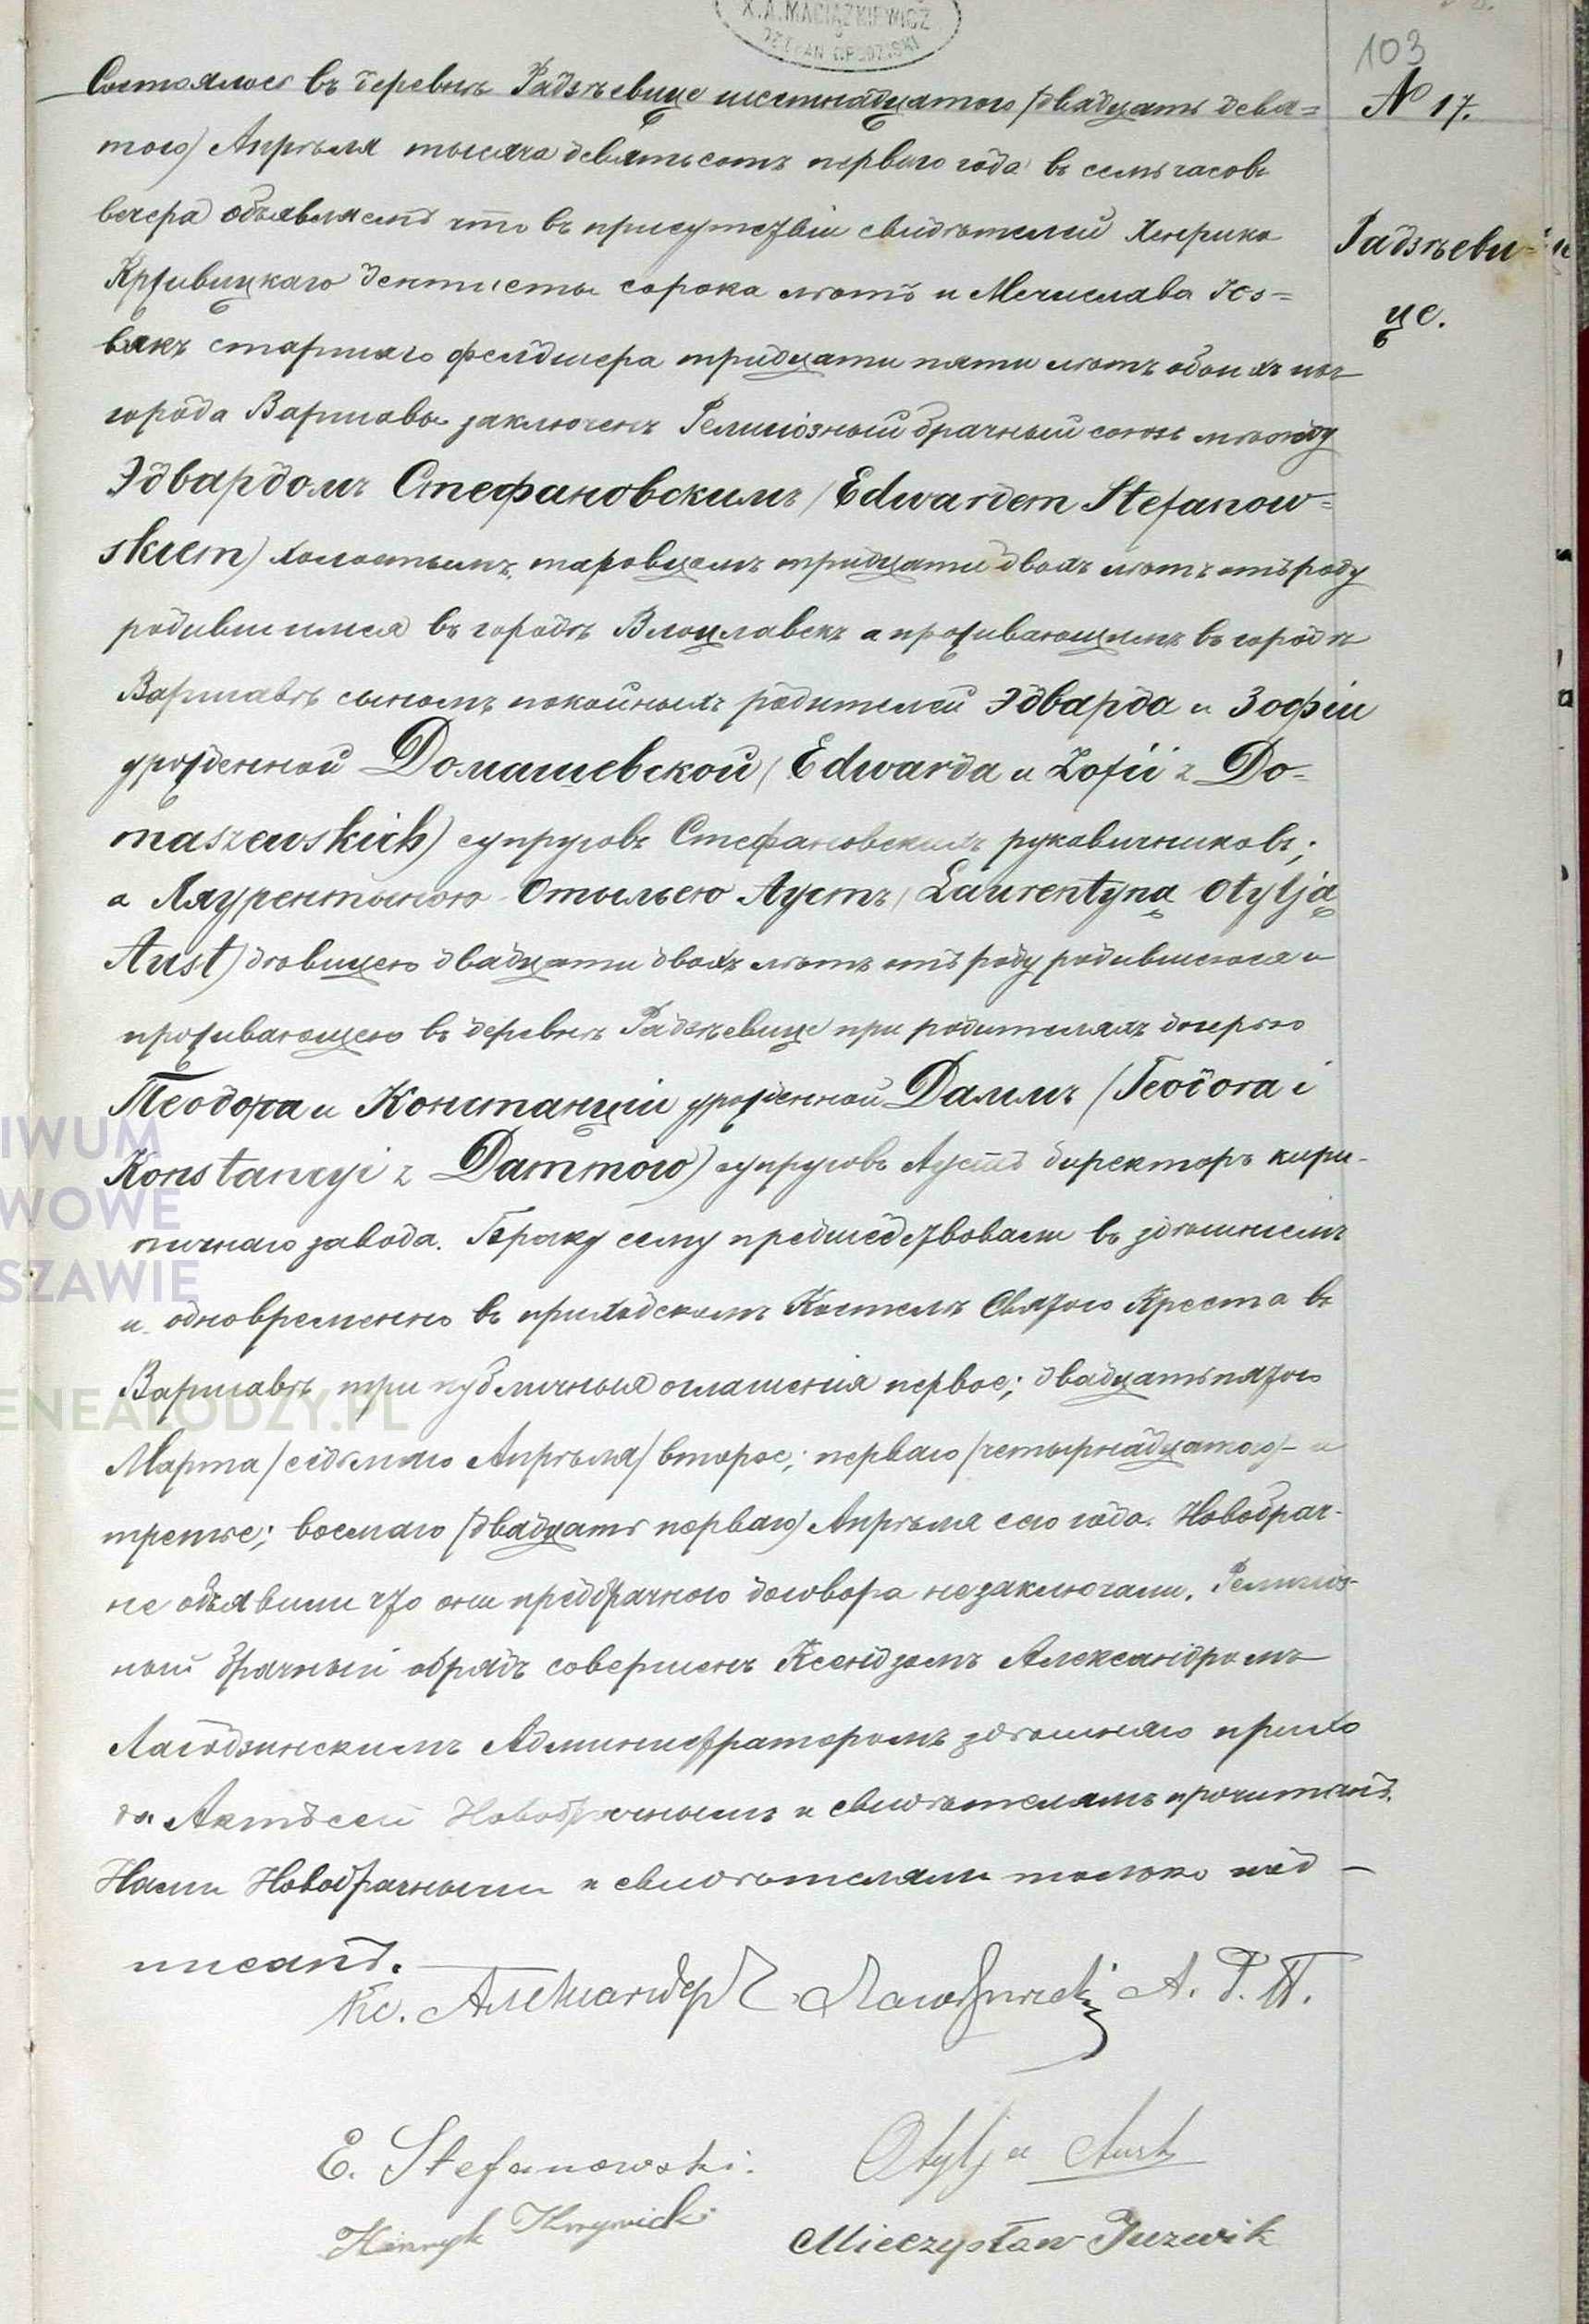 X. A. MACIĄZKIEWICZ
DZIEKAN GRODZISKI
103
№ 17.
Радзѣеви=
це.
Состоялось въ деревнѣ Радзѣевице шестнадцатого /двадцать девя=
того/ Апрѣля тысяча девятьсотъ перваго года въ семь часовъ
вечера объявляемъ что въ присутствіи свидѣтелей Хенрика
Крживицкаго дентисты сорока лѣтъ и Мечислава
старшаго фельдшера тридцати пяти лѣтъ обоихъ изъ
города Варшавы заключенъ Религіозный брачный союзъ между
Эдвардомъ Стефановскимъ /Edwardem Stefanow=
skiem) холостымъ, тридцати двохъ лѣтъ отъ роду
родившимся въ городѣ Влоцлавекъ а проживающимъ въ городѣ
Варшавѣ сыномъ покойныхъ родителей Эдварда и Зофіи
урожденной Домашевской (Edwarda и Zofii z Do=
maszewskich) супруговъ Стефановскихъ рукавичниковъ;
а Ляурентыною Отыльею Аустъ, (Laurentyną Otylją
Aust) дѣвицею двадцати двохъ лѣтъ отъ роду родившеюся и
проживающею въ деревнѣ Радзѣевице при родителяхъ дочерью
Теодора и Констанціи урожденной Даммъ (Teodora i
Konstancyi z Dammów) супруговъ Аустъ директоръ кирп-
ичнаго завода. Браку сему предшедствовали въ здѣшнемъ
и одновременно въ приходскомъ Костелѣ Святого Креста въ
Варшавѣ три публичныя оглашенія первое; двадцать пятого
Марта /седьмаго Апрѣля/ второе; перваго /четырнадцатого/- и
третье; восмаго /двадцать перваго/ Апрѣля сего года. Новобрач-
не объявили что они предбрачного договора незаключали. Религіоз-
ный брачный обрядъ совершенъ Ксендзомъ Александромъ
Лагодзинскимъ Администраторомъ здѣшняго прихо
да Актъ сей Новобрачнымъ и свидѣтелямъ прочитанъ.
Нами Новобрачными и свидѣтелями только под-
писанъ.
Кс. Александръ Лагодзинскі А. Р. П.
E. Stefanowski. Otylja Aust
Henryk Krzywicki Mieczysław Juzwik
IWUM
WOWE
SZAWIE
ENEALODZY.PL